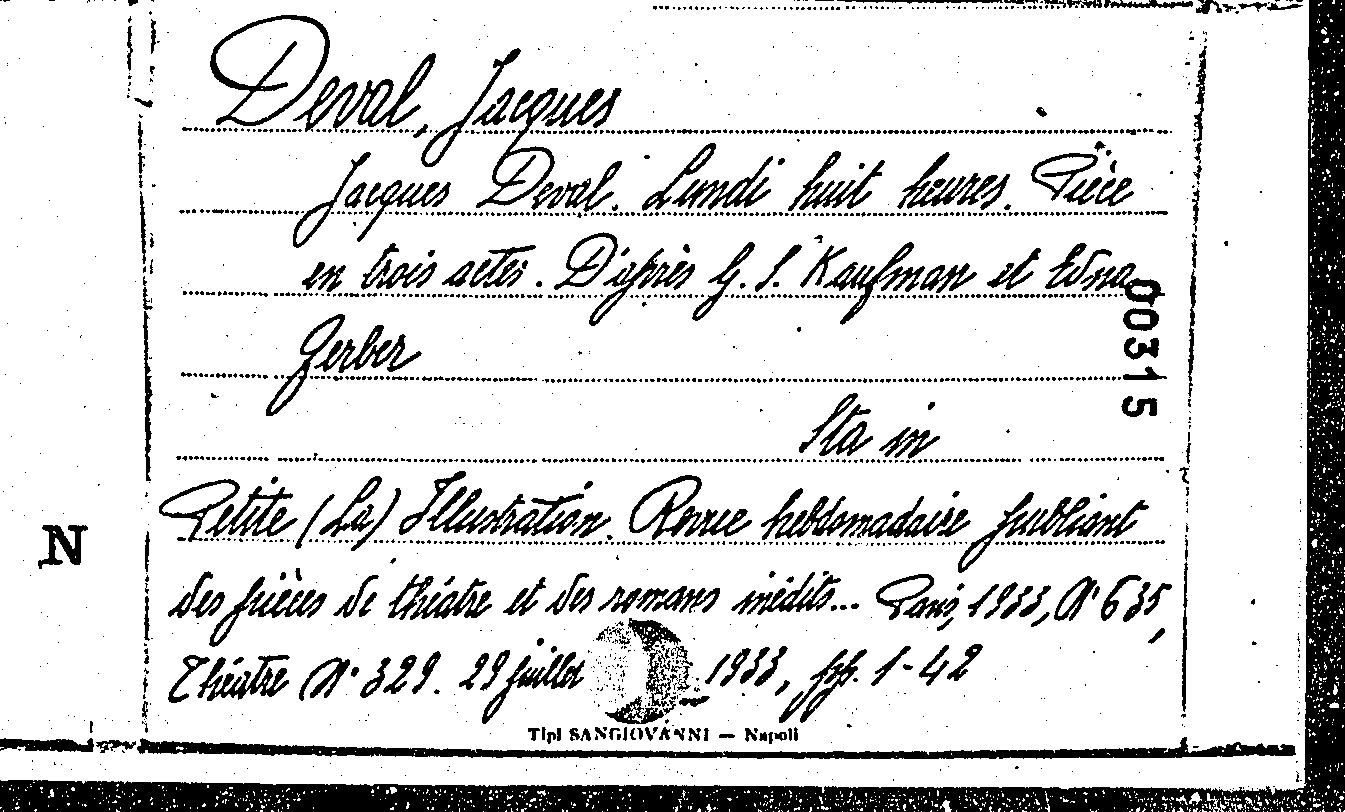 Deval, Jacques
Jacques Deval. Lundi huit heures. Pièce
en trois actes. D'après G. S. Kaufman et Edna
Ferber
00315
Sta in
N
Petite (La) Illustration. Revue hebdomadaire publiant
des pièces de théâtre et des romans inédits... Paris, 1933, N° 635,
Théatre N° 329. 29 juillet 1933, pp. 1-42
Tipi SANGIOVANNI — Napoli